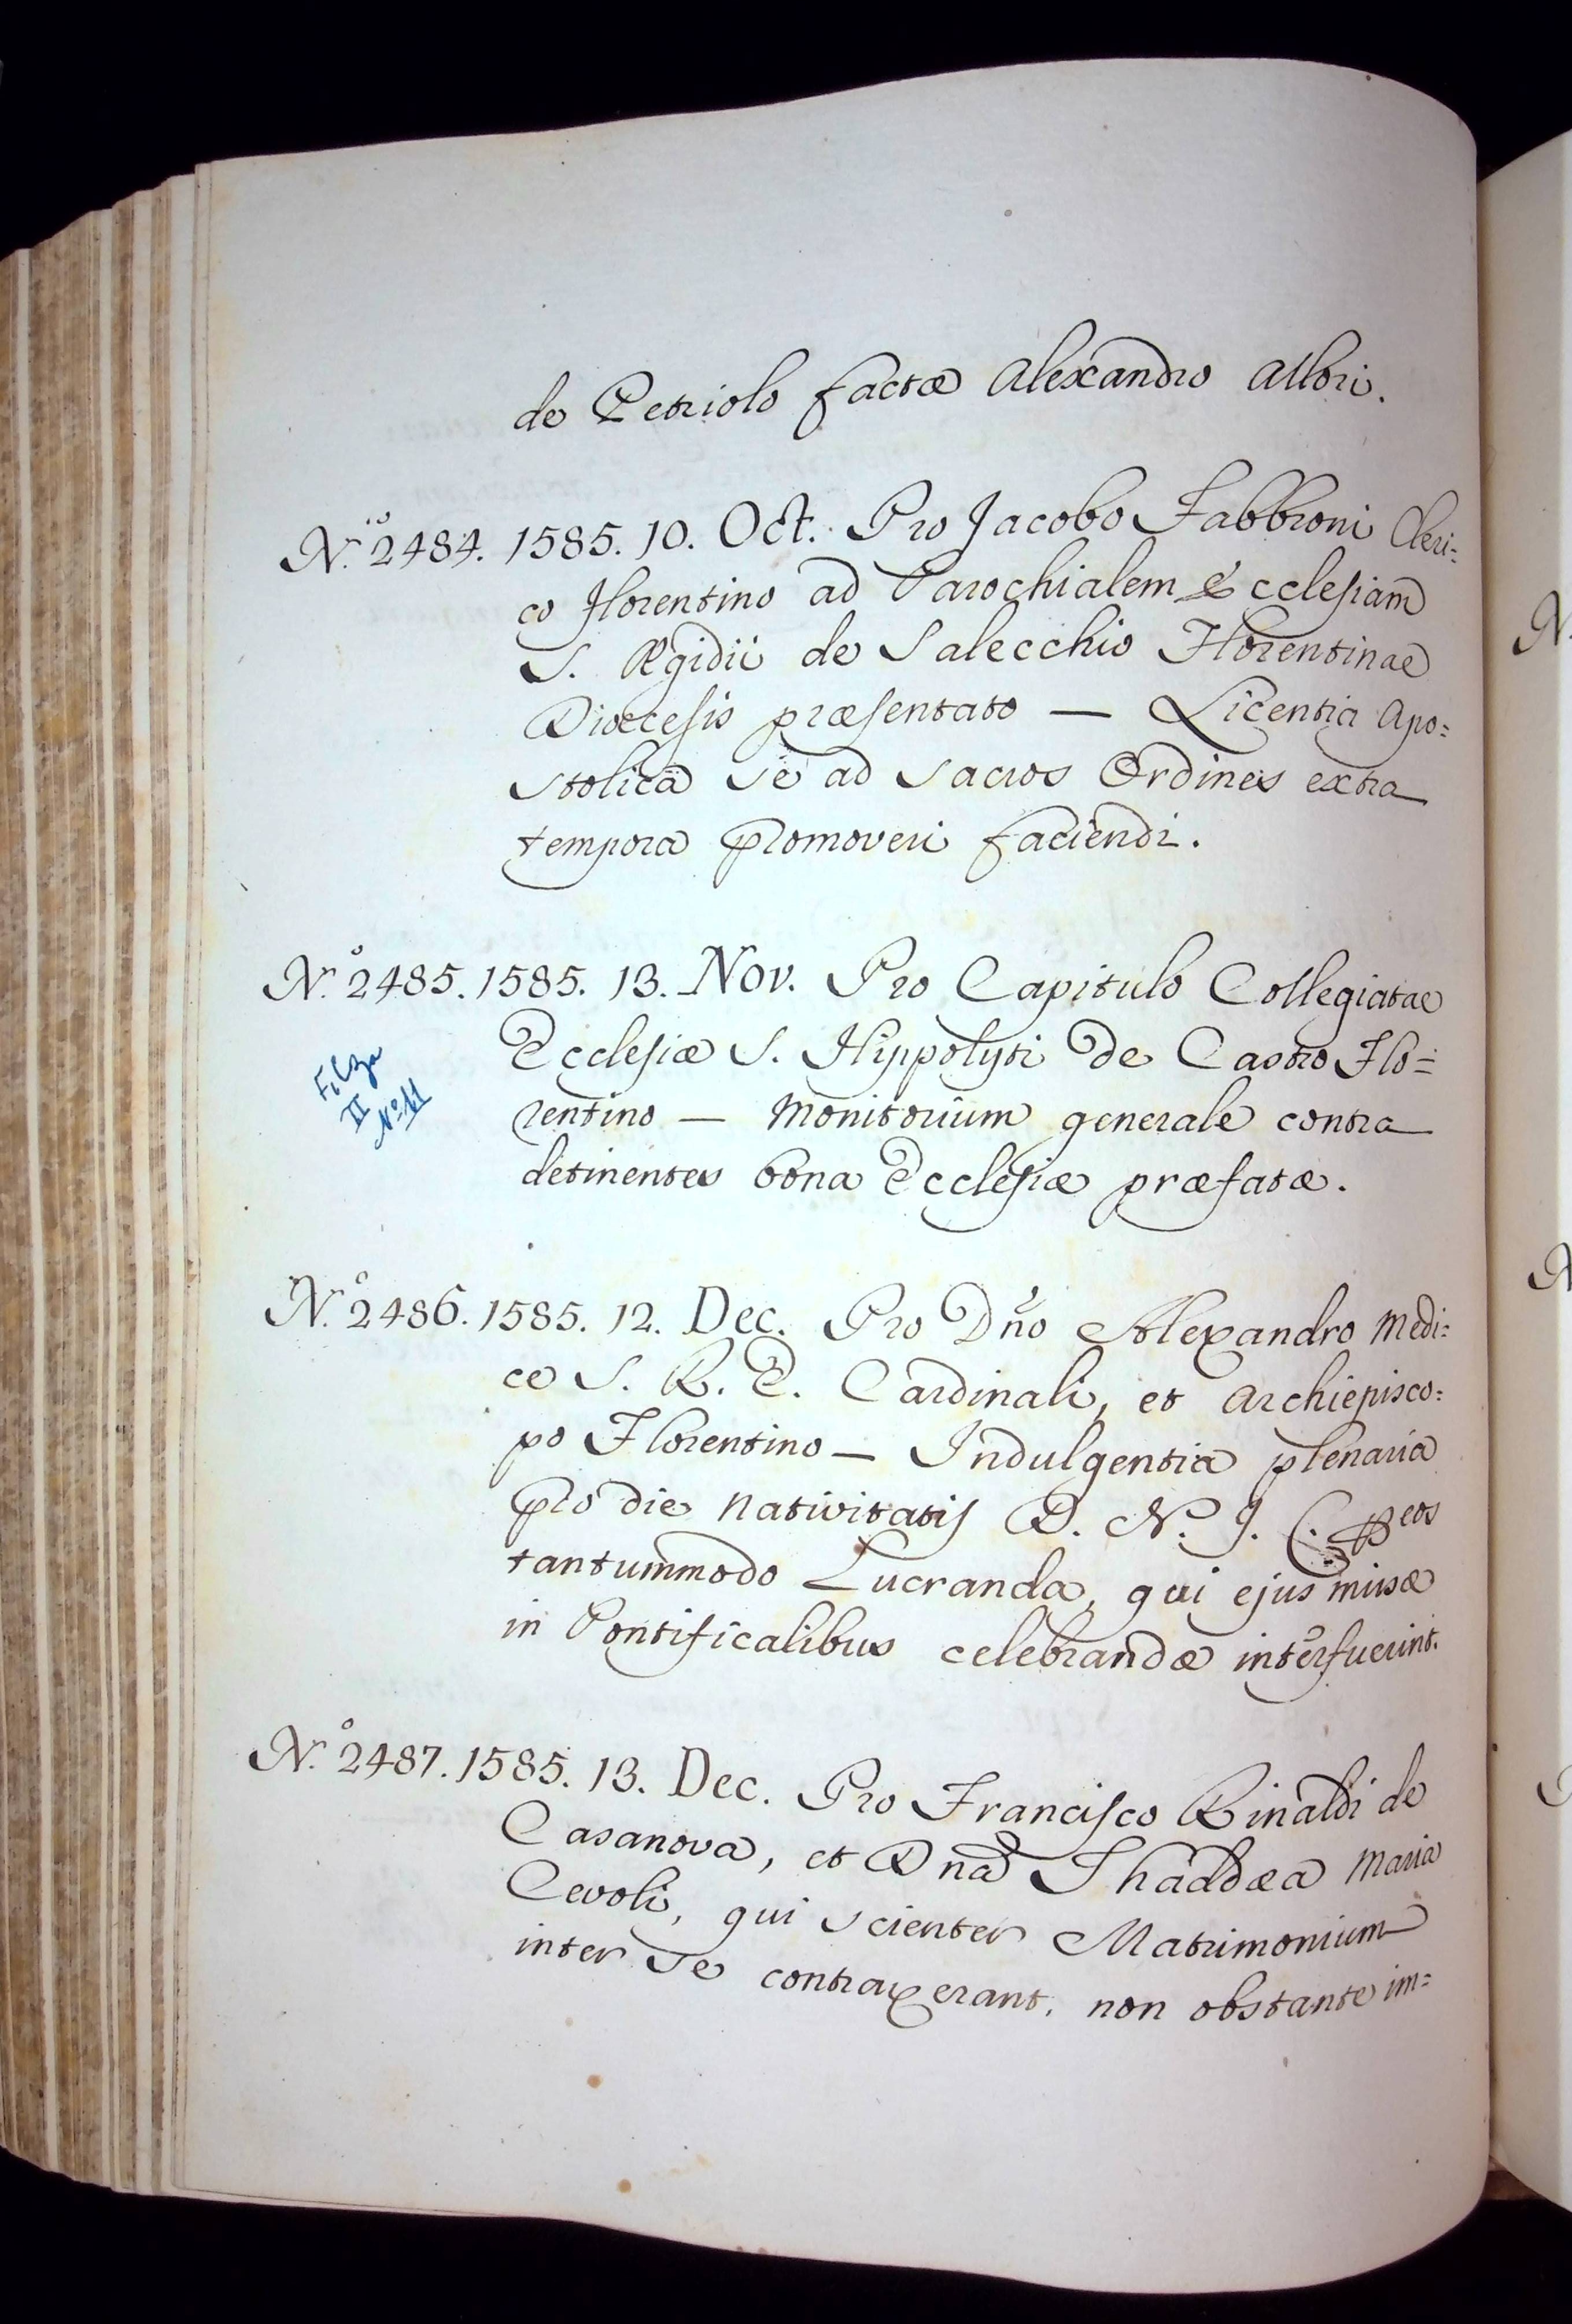 de Petriolo factæ Alexandro Albri.
N.º 2484. 1585. 10. Oct. Pro Jacobo Fabbroni Cleri=
co Florentino ad Parochialem Ecclesiam
S. Ægidii de Salecchio Florentinae
Dioecesis præsentato — Licentia Apo=
stolica se ad Sacros Ordines extra
tempora promoveri faciendi.
N.º 2485. 1585. 13. Nov. Pro Capitulo Collegiatae
Ecclesiæ S. Hippolyti de Castro Flo=
rentino — Monitorium generale contra
detinentes bona Ecclesiæ præfatæ.
Filza
II
Nº 11
N.º 2486. 1585. 12. Dec. Pro Dño Alexandro Medi=
ce S. R. E. Cardinali, et Archiepisco=
po Florentino — Indulgentia plenaria
pro die Nativitatis D. N. J. C. eos
tantummodo Lucranda, qui ejus missæ
in Pontificalibus celebrandæ interfuerint.
N.º 2487. 1585. 13. Dec. Pro Francisco Rinaldi de
Casanova, et Dna Thaddæa Maria
Cevoli, qui scienter Matrimonium
inter se contraxerant, non obstante im=